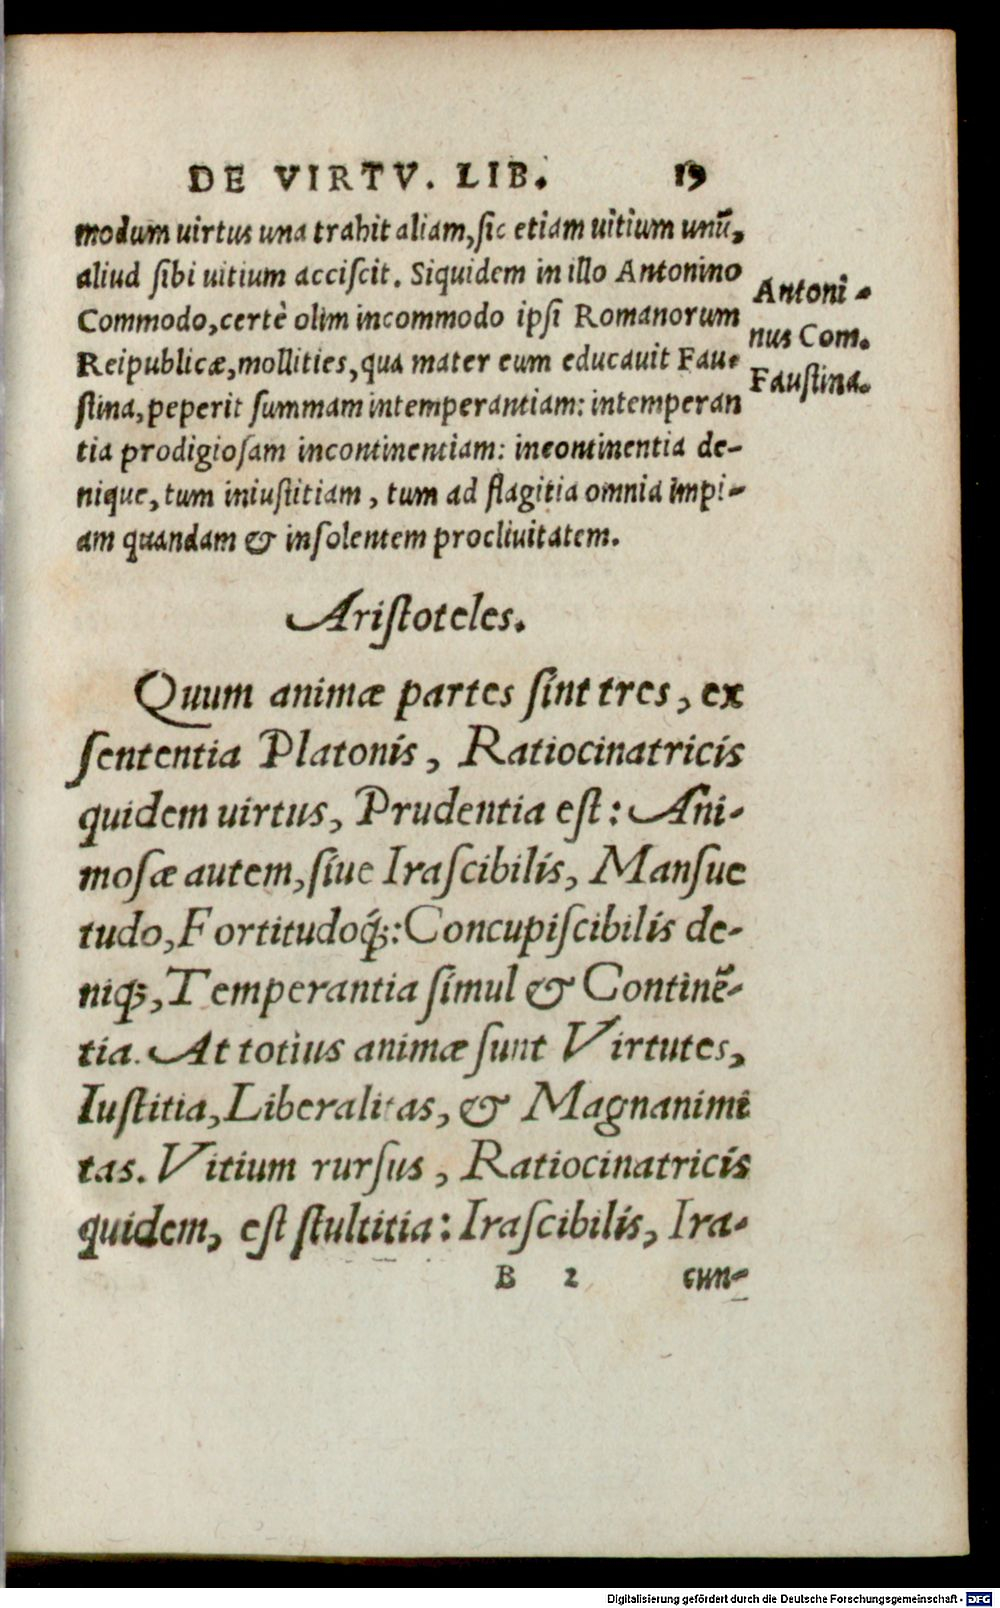 DE VIRTV. LIB. 19
modum uirtus una trahit aliam, ſic etiam uitium unũ,
aliud ſibi uitium acciſcit. Siquidem in illo Antonino
Commodo, certè olim incommodo ipſi Romanorum
Reipublicæ, mollities, qua mater eum educauit Fau-
ſtina, peperit ſummam intemperantiam: intemperan
tia prodigioſam incontinentiam: incontinentia de-
nique, tum iniuſtitiam, tum ad flagitia omnia impi-
am quandam & inſolentem procliuitatem.
Antoni-
nus Com.
Fauſtina.
Ariſtoteles.
Quum animæ partes ſint tres, ex
ſententia Platonis, Ratiocinatricis
quidem uirtus, Prudentia eſt: Ani-
moſæ autem, ſiue Iraſcibilis, Manſue
tudo, Fortitudoq́;: Concupiſcibilis de-
niq;, Temperantia ſimul & Continẽ-
tia. At totius animæ ſunt Virtutes,
Iuſtitia, Liberalitas, & Magnanimi
tas. Vitium rurſus, Ratiocinatricis
quidem, eſt ſtultitia: Iraſcibilis, Ira-
B 2 cun-
Digitalisierung gefördert durch die Deutsche Forschungsgemeinschaft - DFG